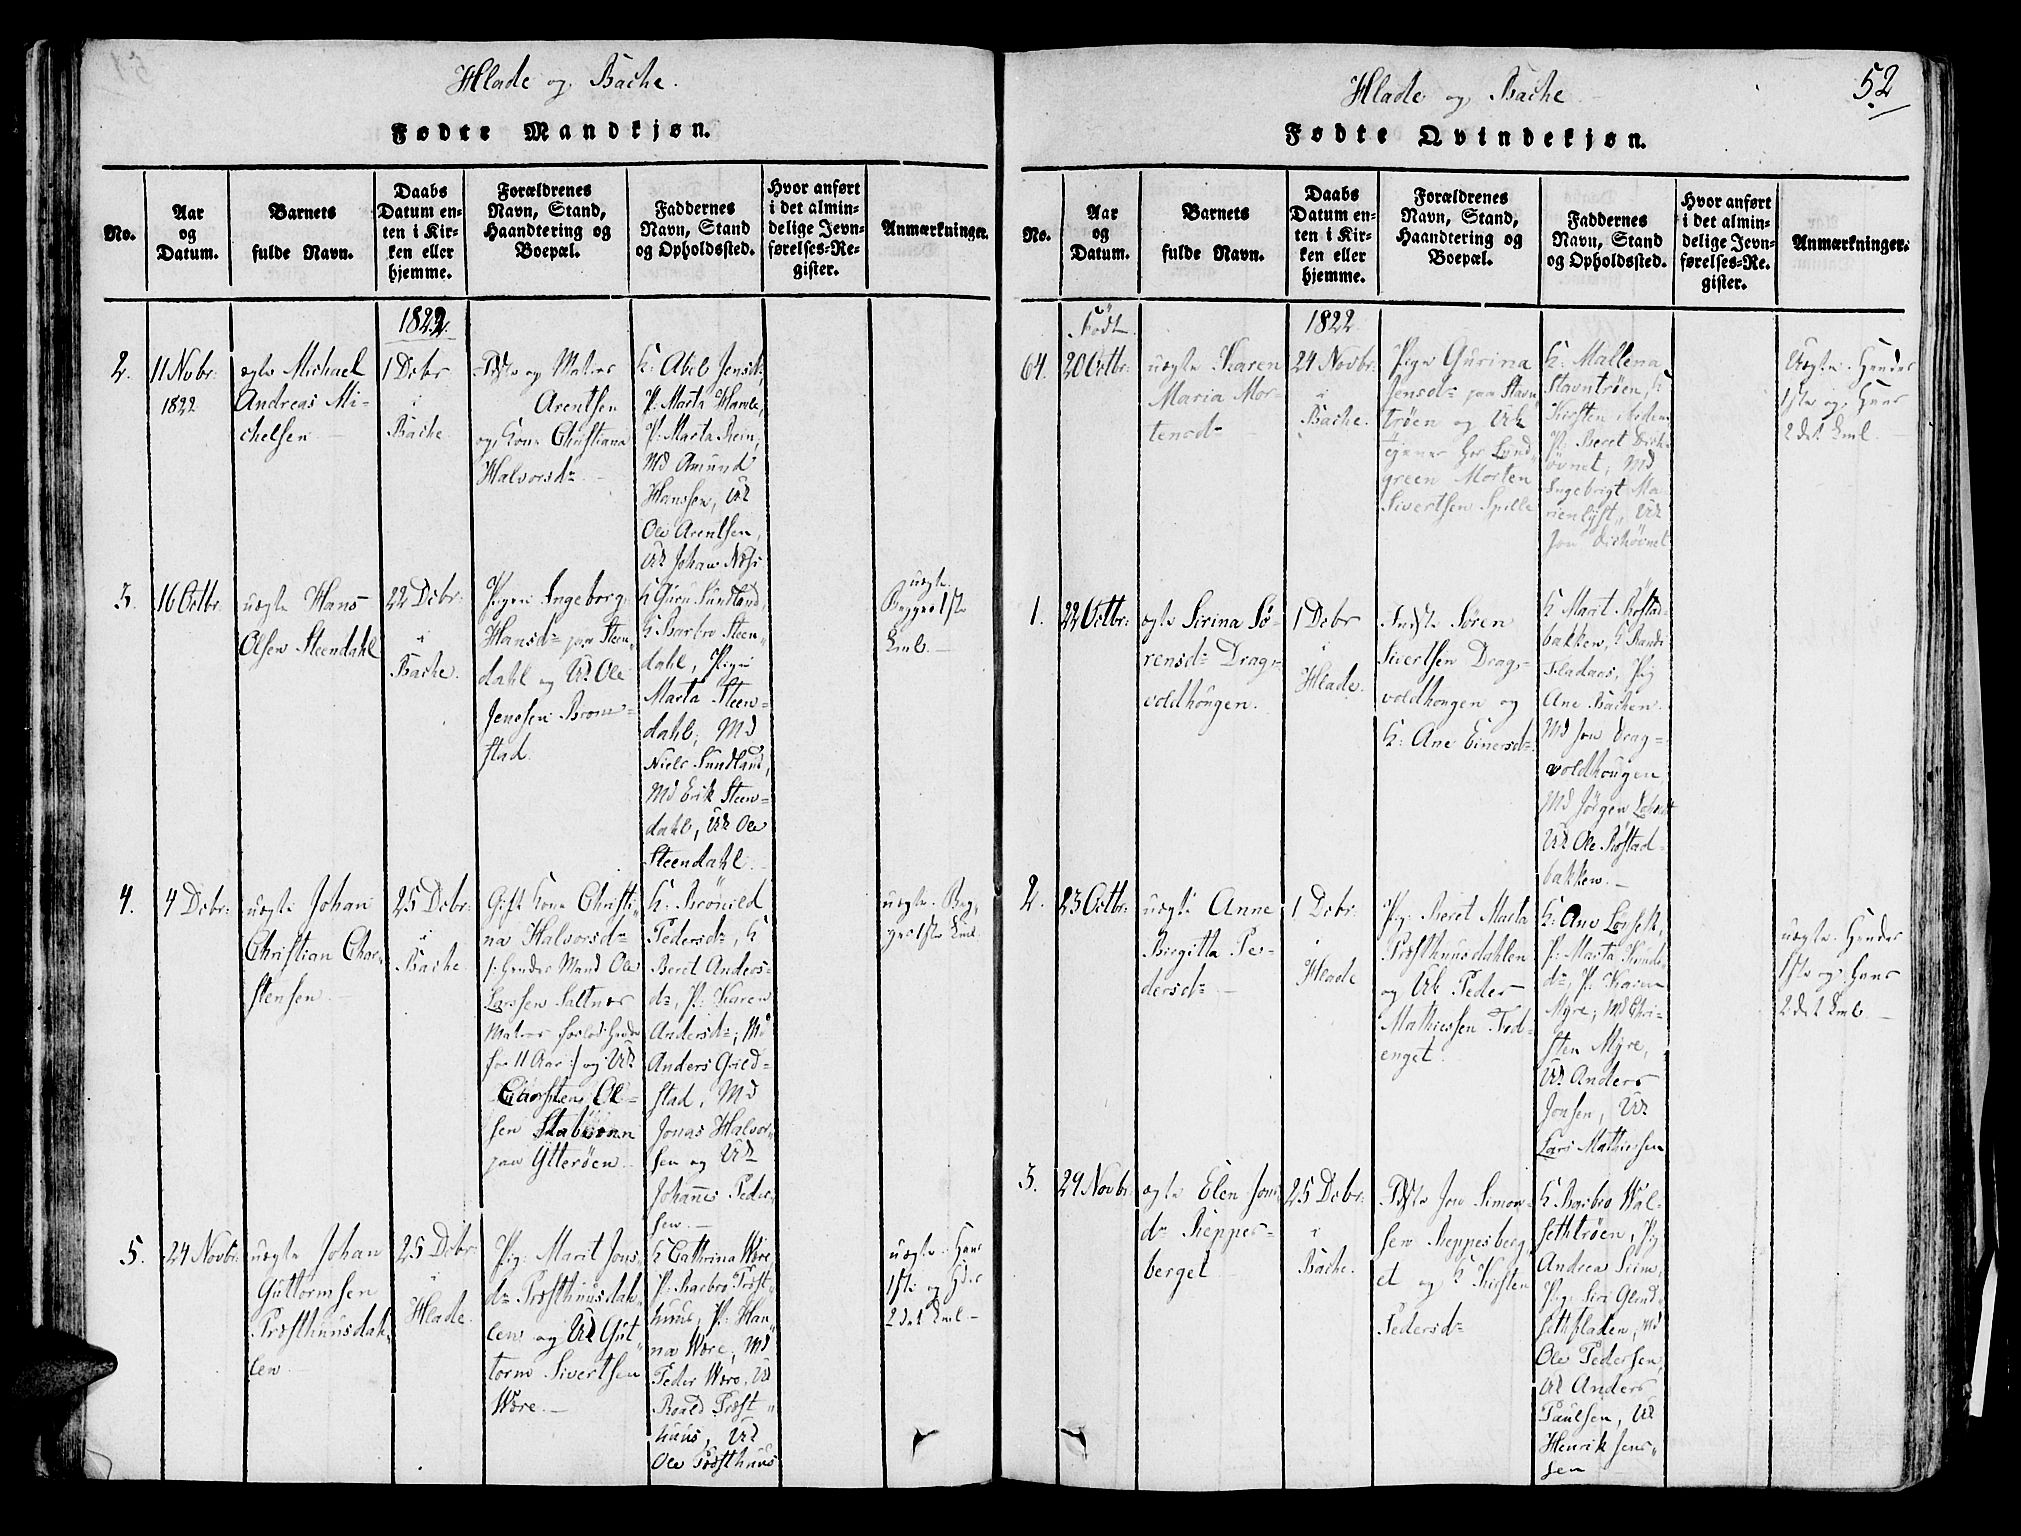 Hlade og Bache.
Fødte Mandkjøn.
No.
Aar
og
Datum.
Barnets
fulde Navn.
Daabs
Datum en-
ten i Kir-
ken eller
hjemme.
Forældrenes
Navn, Stand,
Haandtering og
Boepæl.
Faddernes
Navn, Stand
og Opholdssted.
Hvor anført
i det almin-
delige Jevn-
førelses-Re-
gister.
Anmærkninger.
1822.
2.
11 Novbr:
1822
ægte Michael
Andreas Mi-
chelsen
1 Decbr
i
Bache.
og Matros
Arentsen
og Kone Christiana
Halvorsdr
K: Abel Jensdr,
P: Marta Hamle,
P: Marta Rein,
Md Amund
Hanssen, Uk
Ole Arentsen,
Uk Johan Næss
3.
16 Octbr:
uægte Hans
Olsen Steendahl
22 Decbr:
i
Bache.
Pigen Ingeborg
Hansdr paa Steen-
dahl og Uk Ole
Jenssen Brom-
stad.
K Guru Sundland,
K Barbro Steen-
dahl, Pige
Marta Steen-
dahl; Md
Niels Sundland,
Md Erik Steen-
dahl, Uk Ole
Steendahl.
uægte.
Begges 1ste
Leml.
4.
4 Decbr:
uægte Johan
Christian Chor-
stensen
25 Decbr:
i
Bache.
Gift Kone Christi-
na Halvorsdr
/: hendes Mand Ole
Larssen Saltnes
Matros forlod hende
for 11 Aar :/ og Uk
Chorsten Ol-
sen
paa Ytterøen
K: Brönild
Pedersdr, K
Beret Anders-
dr, P: Karen
Andersdr; Md
Anders Qvild-
stad, Md
Jonas Halvor-
sen og Uk
Johannes Peder-
sen.
uægte. Beg-
ges 1ste Leml.
5.
24 Novbr:
uægte Johan
Guttormsen
Præsthuusdah-
len
25 Decbr:
i
Hlade.
Pig: Marit Jons-
dr Præsthuusdah-
len og Uk Gut-
torm Sivertsen
Være.
K Cathrina Være,
P: Barbro Præst-
huus, P: Han-
na Være, Md
Peder Være, Uk
Roald Præst-
huus, Uk
Ole Præsthuus
uægte. Hans
1ste og Hdes
2det Leml
Hlade og Bache
52
Fødte Qvindekjøn.
No.
Aar
og
Datum.
Barnets
fulde Navn.
Daabs
Datum en-
ten i Kir-
ken eller
hjemme.
Forældrenes
Navn, Stand,
Haandtering og
Boepæl.
Faddernes
Navn, Stand
og Opholdssted.
Hvor anført
i det almin-
delige Jevn-
førelses-Re-
gister.
Anmærkninger.
Födt
1822
64.
20 Octbr:
uægte Karen
Maria Mor-
tensdr
24 Novbr:
i
Bache.
Pige Gurina
Jensdr paa Stavn-
tröen og Uk
tjener hos Lund-
green Morten
Sivertsen Spille
K: Mallena
Stavntröen, K
Kirsten
P: Beret Dirk-
övnet; Md
Ingebrigt Ma-
rienlyst, Uk
Jon Dirkövnet
Uægte. Hendes
1ste og Hans
2det Leml.
1.
22 Octbr:
ægte Sirina Sö-
rensdr Drag-
voldhougen.
1 Decbr
i
Hlade.
Indste Sören
Sivertsen Drag-
voldhougen og
K: Ane Einersdr
K Marit Röstad-
bakken, K Randi
Fladaas, Pig
Ane Bachen.
Md Jon Drag-
voldhougen,
Md Jörgen
Uk Ole Röstad-
bakken.
2.
23 Octbr:
uægte Anne
Birgitta Pe-
dersdr
1 Decbr.
i
Hlade
Pig: Beret Marta
Præsthuusdahlen
og Uk Peder
Mathiessen Fed-
enget.
K: Ane
P: Marta
dr, P: Karen
Myre; Md Chri-
sten Myre,
Uk Anders
Jonsen, Uk
Lars Mathiessen
uægte. Hendes
1ste og Hans
2det Leml.
3.
29 Novbr:
ægte Elen Jons-
dr Reppes-
berget
25 Decbr:
i
Bache.
Jon Simon-
sen Reppesberg-
et og K Kirsten
Pedersdr
K Barbro Wal-
sethtröen, Pig
Andrea Siem,
Pig: Siri
sethfladen, Md
Ole Pedersen,
Uk Anders
Paulsen, Uk
Henrik Jens-
sen